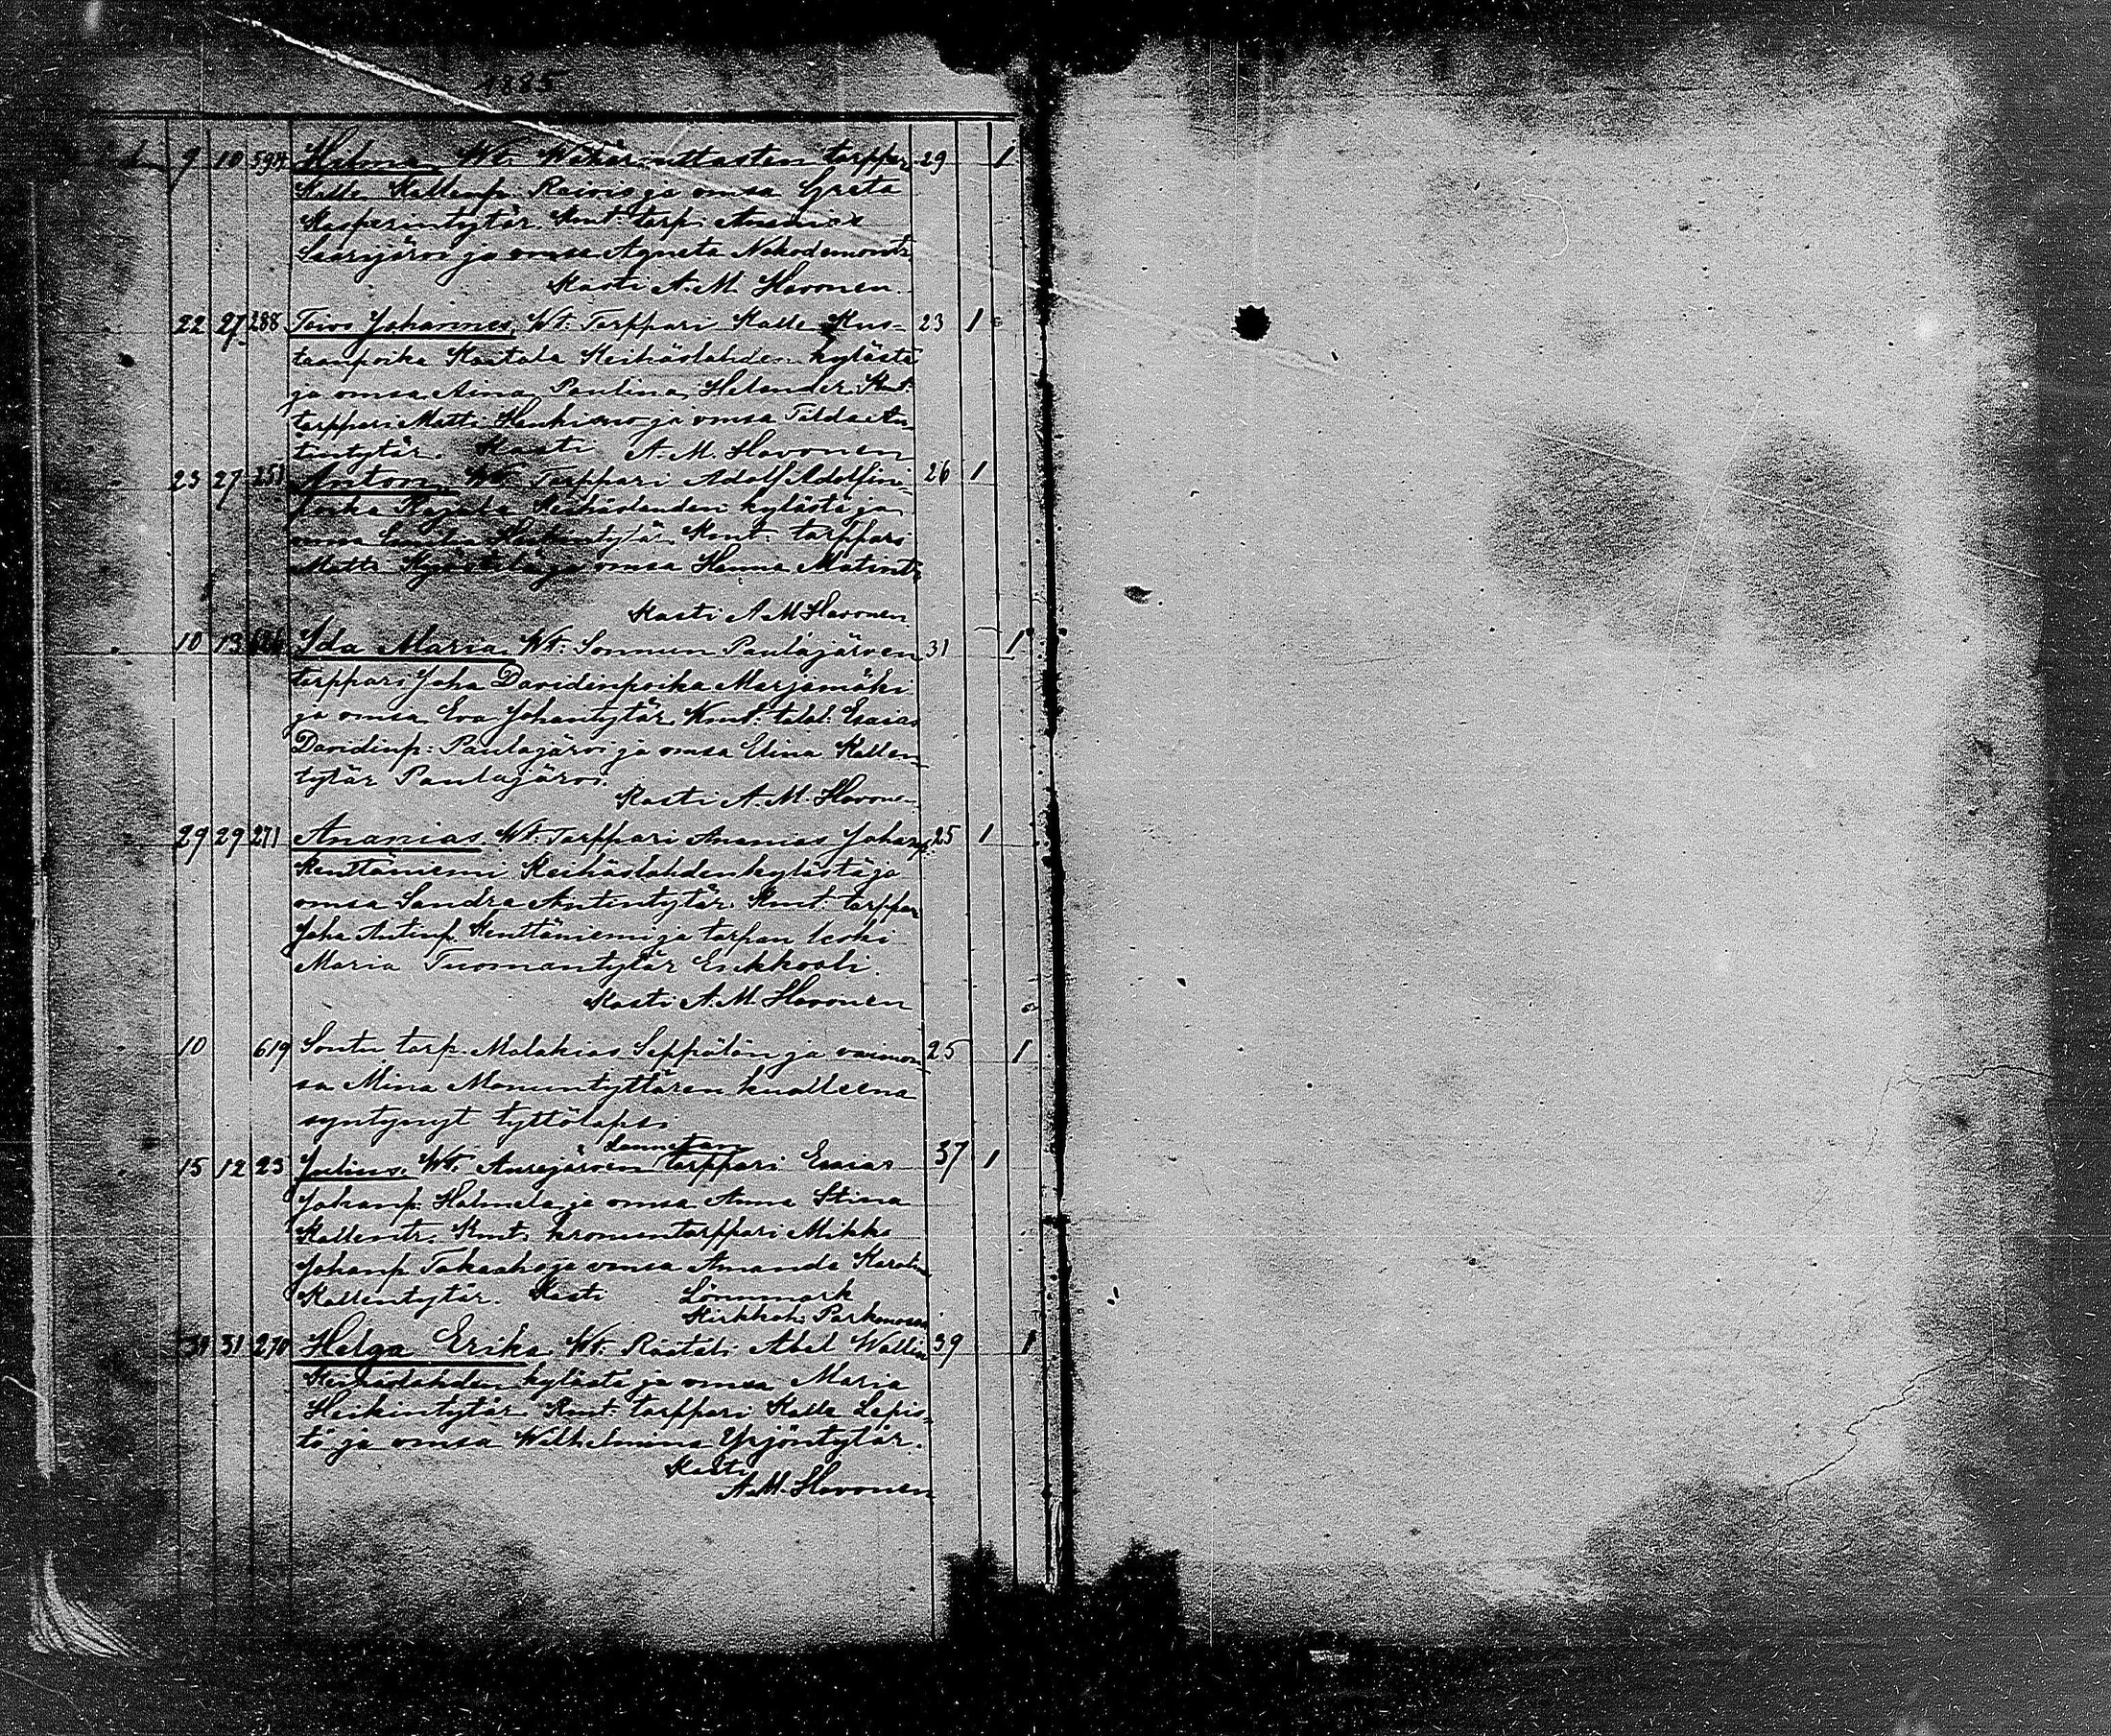 1885
9 10 597 Helma. Wt. torppar 29 1
Kalle Kallenp. Raivio ja omsa Greta
Kasperintytär. Kmt. torp.
Saarijärvi ja omsa Agneta Nikodemontr
Kasti A. M. Horonen.
22 27 288 Toivo Johannes. Wt. Torppari Kalle Kus- 23 1
taanpoika Kaatala Keihäslahden kylästä
ja omsa Aina Paulina Helander. Kmt.
torppari Matti ja omsa Tilda An
tintytär. Kasti A. M. Horonen
23 27 251 Anton. Wt. Torppari Adolf Adolfin- 26 1
poika Rajala Keihäslahden kylästä ja
omsa Heikintytär. Kmt. torppari
Matti ja omsa Hanna Matintr
Kasti A M Horonen
10 13 Ida Maria. Wt. Sommun Paulajärven 31 1
torppari Joha Davidinpoika Marjamäki
ja omsa Eva Johantytär. Kmt. talol. Esaias
Davidinp. Paulajärvi ja omsa Elina Kallen
tytär Paulajärvi.
Kasti A. M. Horonen
29 29 271 Ananias Wt. Torppari Ananias Johanp. 25 1
Kenttäniemi Keihäslahden kylästä ja
omsa Sandra Antintytär. Kmt. torppar
Joha Antinp. Kenttäniemi ja torpan leski
Maria Tuomantytär
Kasti A. M. Horonen
10 619 Sontu torp. Malakias Seppälän ja vaimon- 25 1
sa Mina Manuntyttären kuolleena
syntynyt tyttölapsi.
15 12 23 Julius. Wt. Aurejärven torppari Esaias 37 1
Johanp. Halmela ja omsa Anna Stina
Kallentr. Kmt. kruununtorppari Mikko
Johanp. Takaaho ja omsa Amanda Karolin
Kallentytär. Kasti Lönnmark
Kirkkoh. Parkanossa.
31 31 270 Helga Erika. Wt. Räätäli Abel Wallin 39 1
Keihäslahden kylästä ja omsa Maria
Heikintytär. Kmt. torppari Kalle Lepis-
tö ja omsa Wilhelmina Yrjöntytär.
Kasti
A. M. Horonen